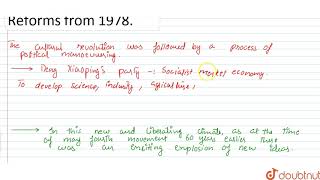 Reforms from 1978.
The cultural revolution was followed by a process of
political manoeuvering.
→ Deng Xiaoping's party -: Socialist market economy.
To develop science, industry, agriculture,
→ In this new and liberating climate, as at the time
of may fourth movement 60 years earlier there
was an exciting explosion of new ideas.
doubtnut